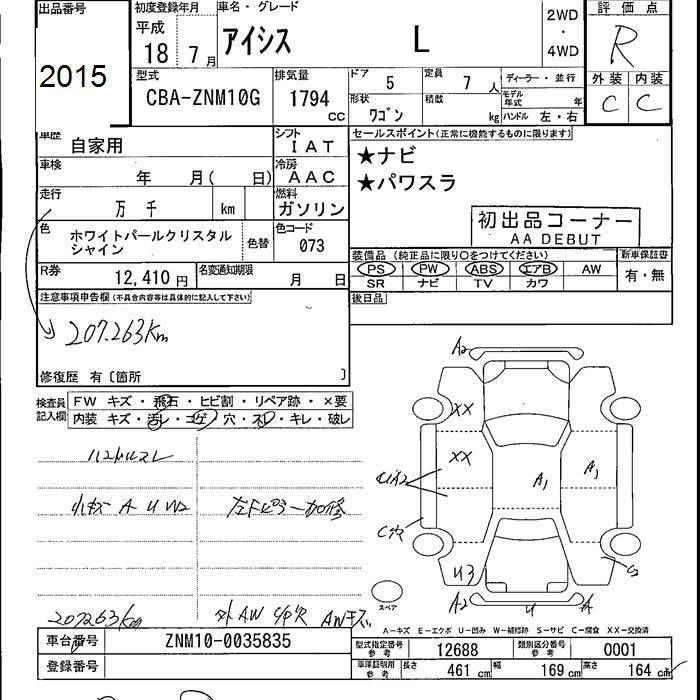 出品番号
2015
初度登録年月
平成
18 7月
車名・グレード
アイシス L
2WD
・
4WD
評価点
R
外装 内装
C C
型式
CBA-ZNM10G
排気量
1794 cc
ドア 5
定員 7 人
形状 ワゴン
積載 kg
ディーラー・並行
モデル年式 年
ハンドル 左・右
車歴 自家用
シフト IAT
車検 年 月( 日)
冷房 AAC
走行 万 千 km
燃料 ガソリン
色 ホワイトパールクリスタル
シャイン
色替
色コード 073
R券 12,410 円
名変通知期限 月 日
セールスポイント(正常に機能するものに限ります)
★ナビ
★パワスラ
初出品コーナー
AA DEBUT
装備品 (純正品に限り○をつけてください)
PS PW ABS エアB AW
SR ナビ TV カワ
新車保証書
有・無
後日品
注意事項申告欄(不具合内容等は具体的に記入して下さい)
207.263Km
修復歴 有〔箇所 〕
検査員
記入欄
FW キズ・飛石・ヒビ割・リペア跡・×要
内装 キズ・汚レ・コゲ・穴・スレ・キレ・破レ
ハンドルスレ
小キズ A U W2
左Fピラー加修
207263Km
外AW
AWキズ
A2
XX
XX
A1
A1
C穴
U3
A2
U
A
S2
スペア
A－キズ E－エクボ U－凹み W－補修跡 S－サビ C－腐食 XX－交換済
車台番号 ZNM10-0035835
登録番号
型式指定番号
参考
12688
類別区分番号
参考
0001
車庫証明用
参考
長さ 461 cm 幅 169 cm 高さ 164 cm